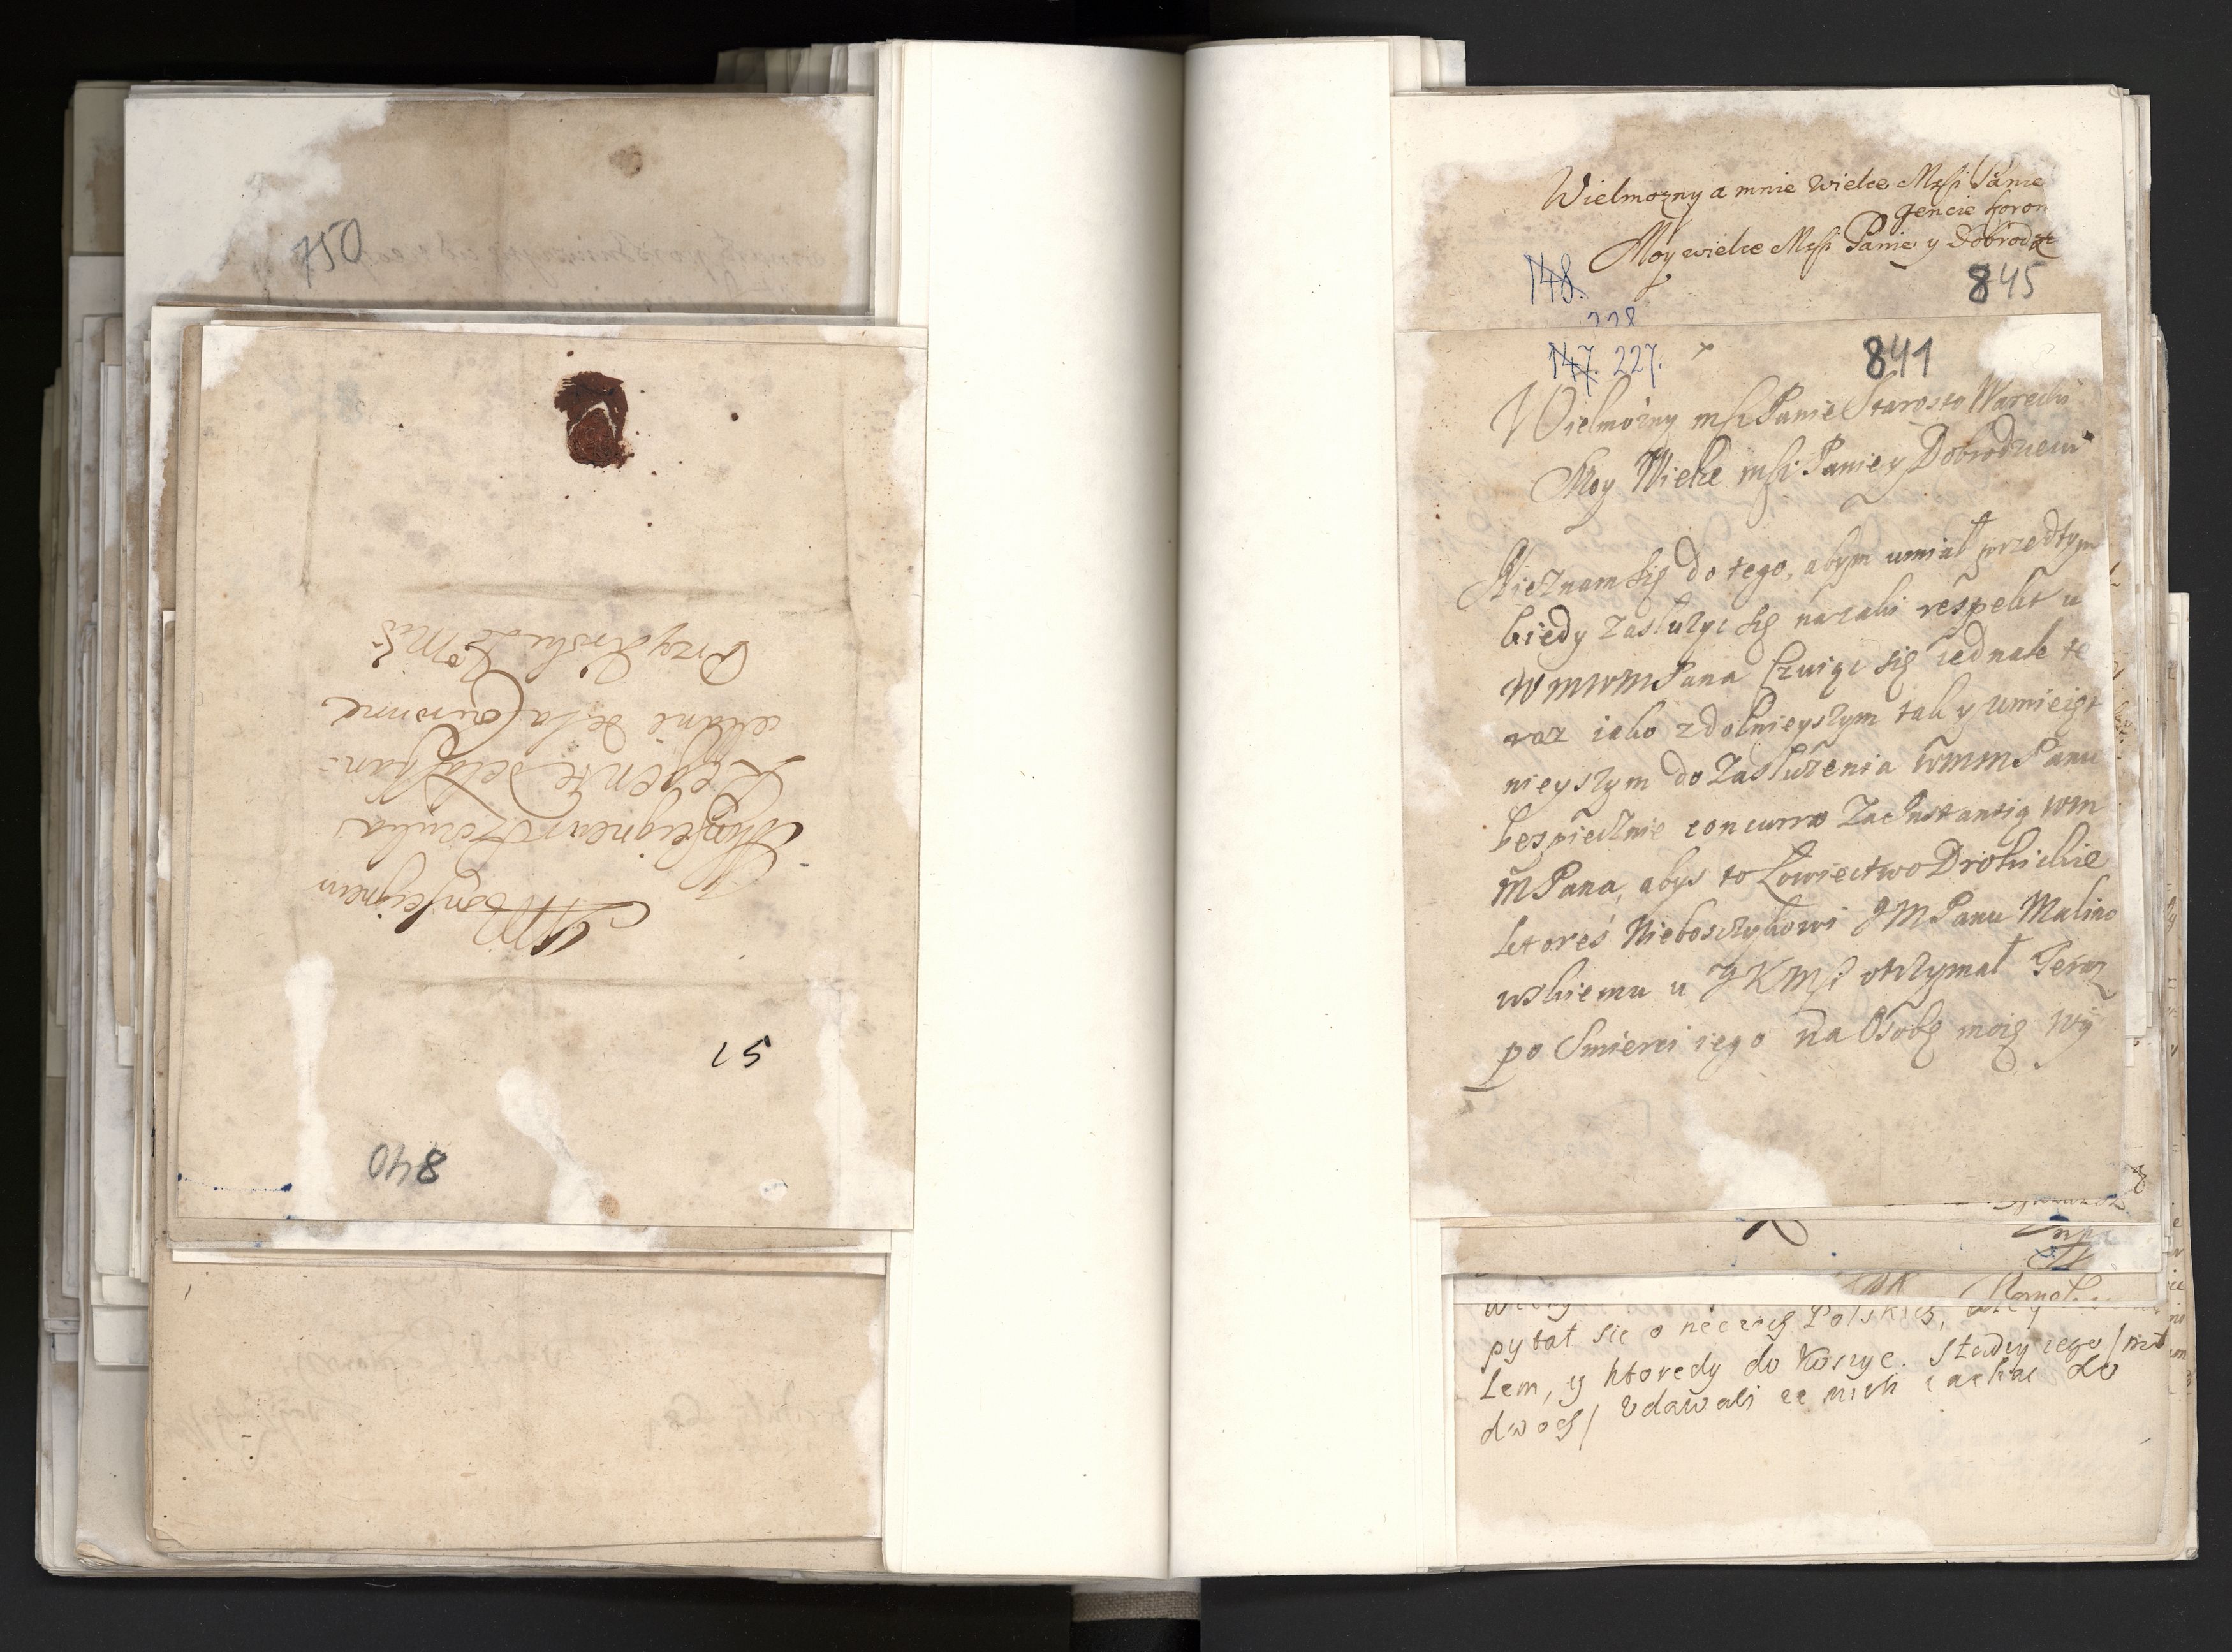 750
Monseigneur
Monseigneur Szczuka
Regente de la Chan=
cellerie de la Couronne
15
840
Wielmozny a mnie wielce Mfsi Panie
gencie Koron
Moy wielce Mfsi Panie y Dobrodz
148.
845
228
147. 227.
841
Wielmożny msi Panie Starosto Warecki
Moy Wielce msi Panie y Dobrodzieiu
Nieznam się do tego, abym umiał przedtym
kiedy zasłuzyc się na taki respekt u
WMWMPana Czuiąc się iednak te
raz iako zdolnieyszym tak y umieięt
nieyszym do Zasłuzenia WMMPanu
bespiecznie concurro Za Instantią WM
MPana, abys to Łowiectwo Drohickie
ktoreś Nieboszczykowi JMPanu Malino
wskiemu u JKMsi otrzymał Teraz
po Smierci iego na Osobę moię wy
pytał sie o rzeczach Polskich,
lem, y ktoredy do Koszyc.
dwoch/ udawali ze nich iachac do